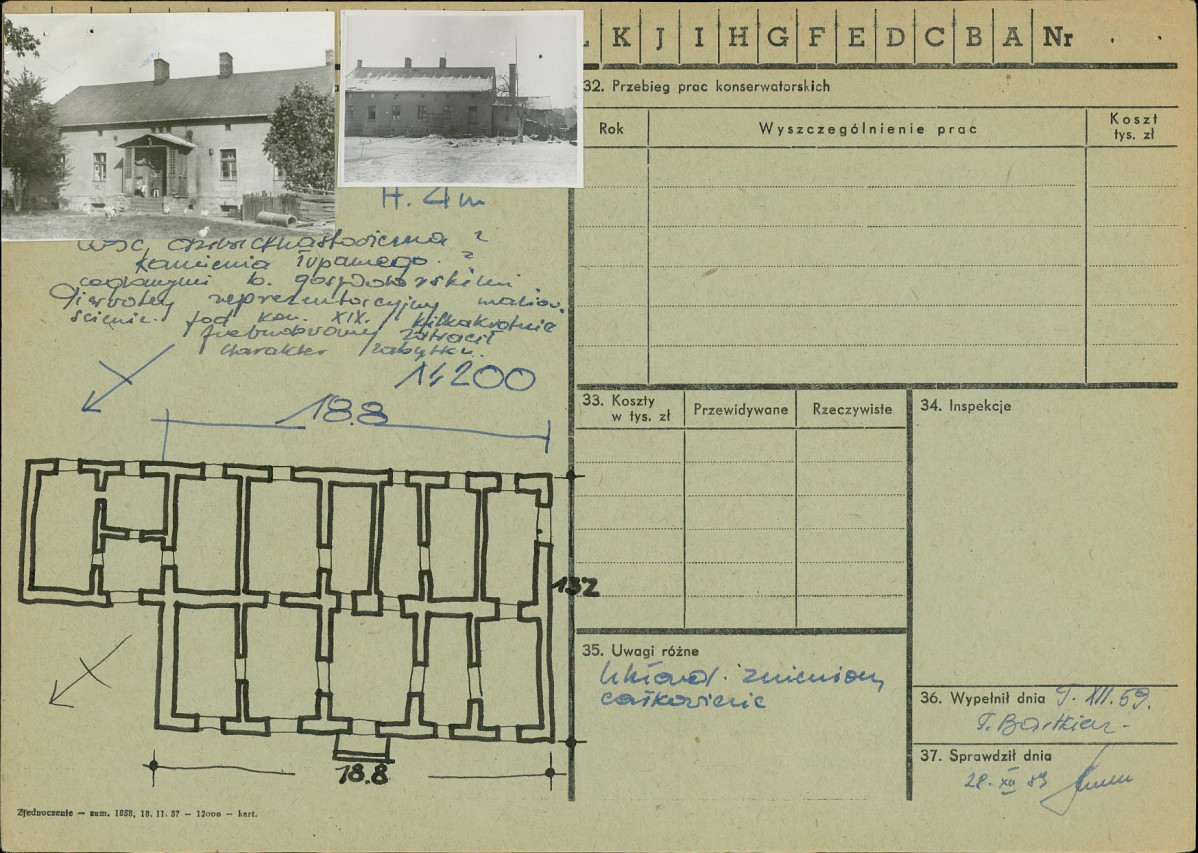 K J I H G F E D C B A Nr
32. Przebieg prac konserwatorskich
Rok
Wyszczególnienie prac
Koszt
tys. zł
H. 4m
kamienia łupanego.
b. gospodarskimi
reprezentacyjny
kon. XIX. kilkakrotnie
przebudowany zatracił
charakter zabytku.
1:200
18.8
132
18.8
33. Koszty
w tys. zł
Przewidywane
Rzeczywiste
34. Inspekcje
35. Uwagi różne
Układ zmieniony
całkowicie
36. Wypełnił dnia XII.59.
T. Bartkiew-
37. Sprawdził dnia
28. XII
Zjednoczenie — zam. 1858, 18. 11. 57 — 12000 — kart.